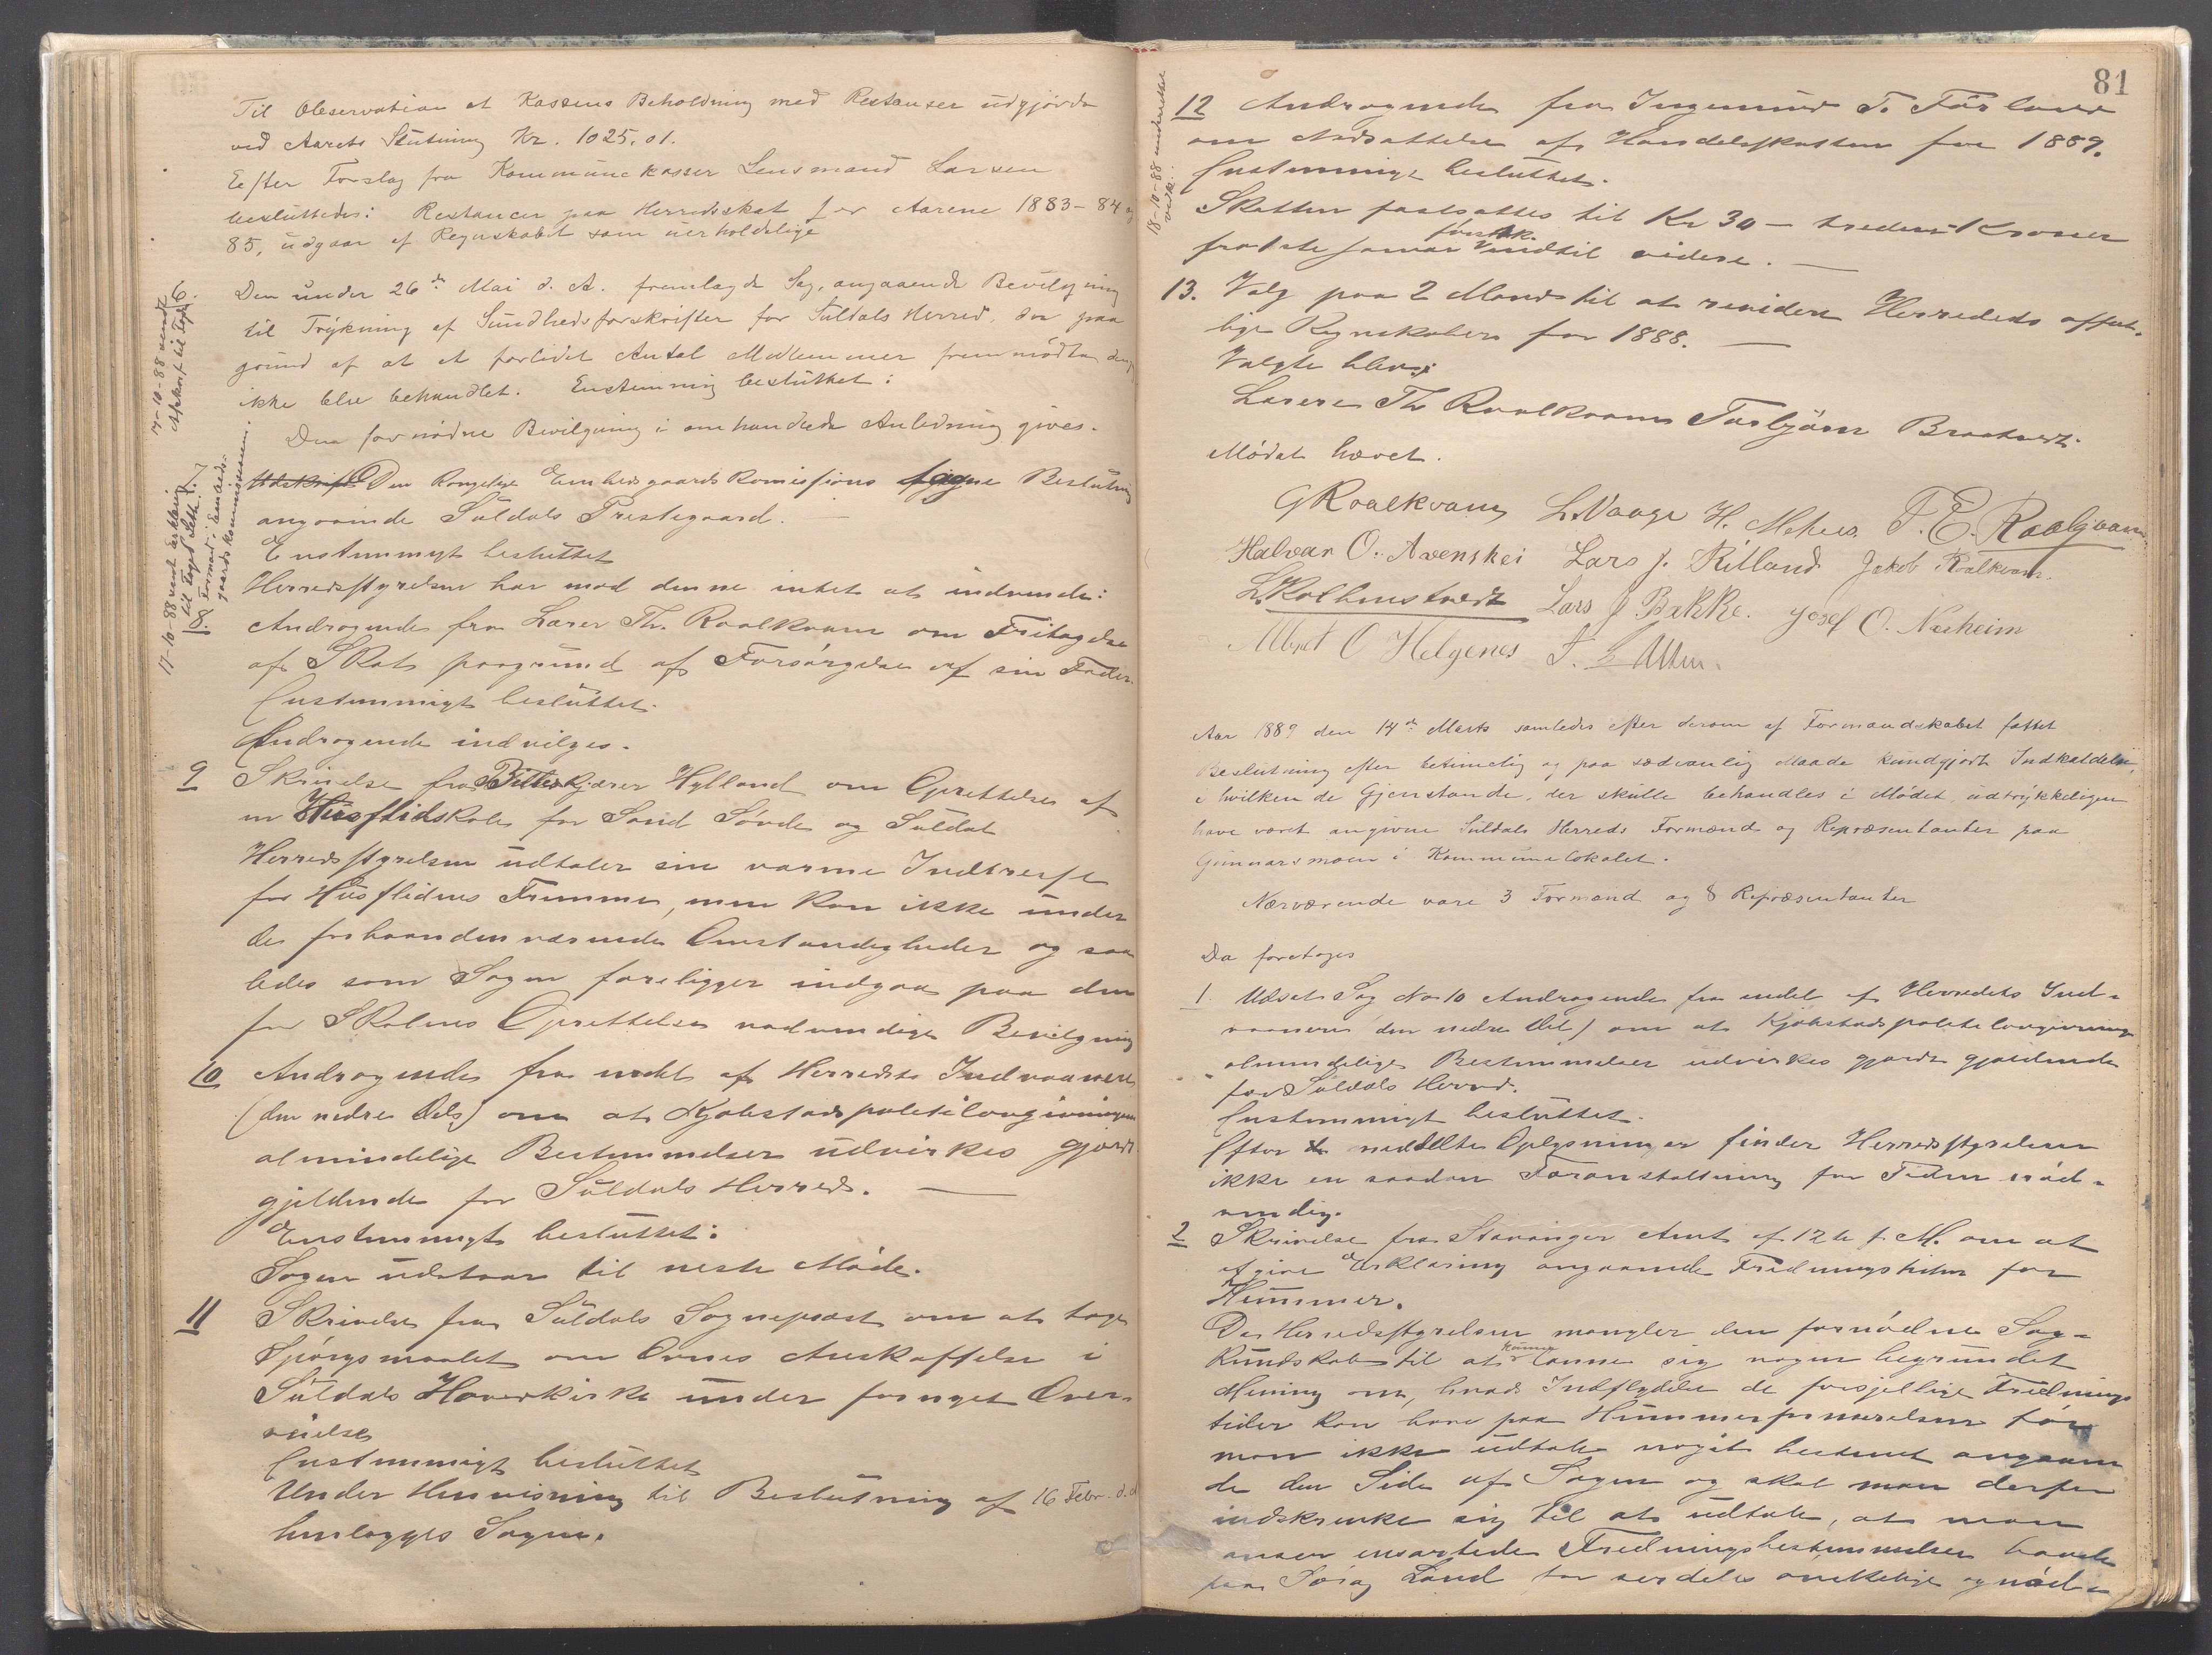 Til Observation at Kassens Beholdning med Restanser udgjorde
ved Aarets Slutning Kr. 1025,01.
Eefter Forslag fra Kommunekasser Lensmand Larsen
besluttedes: Restancer paa Herredsskat for Aarene 1883-84 og
85, udgaar af Regnskabet som uerholdelige
17-10-88 sendt
Afskrift til Fogd
6.
Den under 26de Mai d. A. fremlagde Sag, angaaende Bevilgning
til Trykning af Sundhedsforskrifter for Suldals Herred, der paa
grund af at et forlidet Antal Medlemmer fremmødte
ikke blev behandlet. Enstemmig besluttet:
Den fornødne Bevilgning i omhandlede Anledning gives.
17-10-88 sendt Erklæring
til Fogd
Formad i Embeds-
gaardskommissionen.
Udskrift Den Kongelige Embedsgaards Komissions Beslutning
angaaende Suldals Prestegaard.
Enstemmigt besluttet
Herredsstyrelsen har mod denne intet at indvende:
8.
Andragende fra Lærer Th. Roalkvam om Fritagelse
af Skat paagrund af Forsørgelse af sin Fader.
Enstemmigt besluttet.
Andragende indvilges.
9 Skrivelse fra Hylland om Oprettelse af
en Husflidskole for Sand Søvde og Suldal
Herredsstyrelsen udtaler sin varme Indtresse
for Husflidens Fremme, men kan ikke under
de forhaandenværende Omstændigheder og saa
ledes som Sagen foreligger indgaa paa den
for Skolens Oprettelse nødvendige Bevilgning
10 Andragende fra endel af Herredets Indvaanere
(den nedre Del) om at Kjøbstadspolitilovgivningens
almindelige Bestemmelser udvirkes gjort
gjeldende for Suldals Herred.
Enstemmigt besluttet:
Sagen udstaar til neste Møde.
11 Skrivelse fra Suldals Sogneprest om at tage
Spørgsmaalet om Ovnes Anskaffelse i
Suldals Hovedkirke under fornyet Over-
veielse
Enstemmigt besluttet
Under Henvisning til Beslutning af 16 Febr. d.A
henlægges Sagen.
81
18-10-88 underrettet
vedk.
12 Andragende fra Ingemund T. Førland
om Nedsættelse af Handelsskatten for 1889.
Enstemmigt besluttet.
Skatten fastsattes til Kr 30 - tredive Kroner
fra 1ste Januar indtil videre.
førstk.
13. Valg paa 2 Mænd til at revidere Herredets offent-
lige Regnskaber for 1888.
Valgte blev:
Lærere Th Roalkvam Torbjørn Bråtveit.
Mødet hævet.
G Roalkvam L. Vaage H. Mehus T. E. Roalkvam
Halvar O. Aarenskei Lars J. Ritland Jakob Roalkvam.
L. Kolbenstvedt Lars J Bakke. Josef O. Næsheim
Albret O Helgenes
Aar 1889 den 14de Marts samledes efter derom af Formandskabet fattet
Beslutning efter betimelig og paa sædvanlig Maade kundgjort Indkaldelse,
i hvilken de Gjenstande, der skulle behandles i Mødet, udtrykkeligen
have været angivne Suldals Herreds Formænd og Repræsentanter paa
Gunnarsmoen i Kommunelokalet.
Nærværende vare 3 Formænd og 8 Repræsentanter
Da foretoges
1. Udsat Sag No 10 Andragende fra endel af Herredets Ind-
vaanere (den nedre Del) om at Kjøbstadspolitilovgivnings
almindelige Bestemmelser udvirkes gjorde gjældende
for Suldals Herred.
Enstemmigt besluttet.
Efter de meddelte Oplysninger finder Herredsstyrelsen
ikke en saadan Foranstaltning for Tiden nød-
vendig.
2 Skrivelse fra Stavanger Amt af 12te f. M. om at
afgive Erklæring angaaende Fredningstiden for
Hummer.
Da Herredsstyrelsen mangler den fornødne Sag-
kundskab til at kunne danne sig nogen begrundet
Mening om, hvad Indflydelse de forsjellige Frednings
tider kan have paa Hummerformerelsen tør
man ikke udtale noget bestemt angaaen
de den Side af Sagen og skal man derfor
indskrenke sig til at udtale, at man
anser ensartede Fredningsbestemmelser baade
for og Land for serdeles ønskelige og nød-